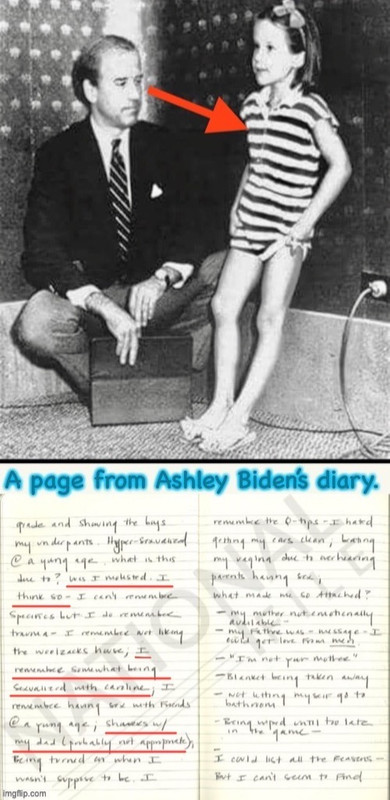 A page from Ashley Biden's diary.
grade and showing the boys
my underpants. Hyper-sexualized
@ a young age. What is this
due to? Was I molested. I
think so - I can't remember
specifics but I do remember
trauma - I remember not liking
the woolzacks house; I
remember somewhat being
sexualized with caroline; I
remember having sex with friends
@ a young age; showers w/
my dad (probably not appropriate).
Being turned on when I
wasn't suppose to be. I
remember the Q-tips - I hated
getting my ears clean,
my due to overhearing
parents having sex,
what made me so attached?
- my mother not emotionally
available -
- my father was - message - I
could get love from men,
- "I'm not your mother"
- Blanket being taken away
- not letting myself go to
bathroom
- Being wiped until too late
in the game -
-
I could list all the reasons -
But I can't seem to find
imgflip.com